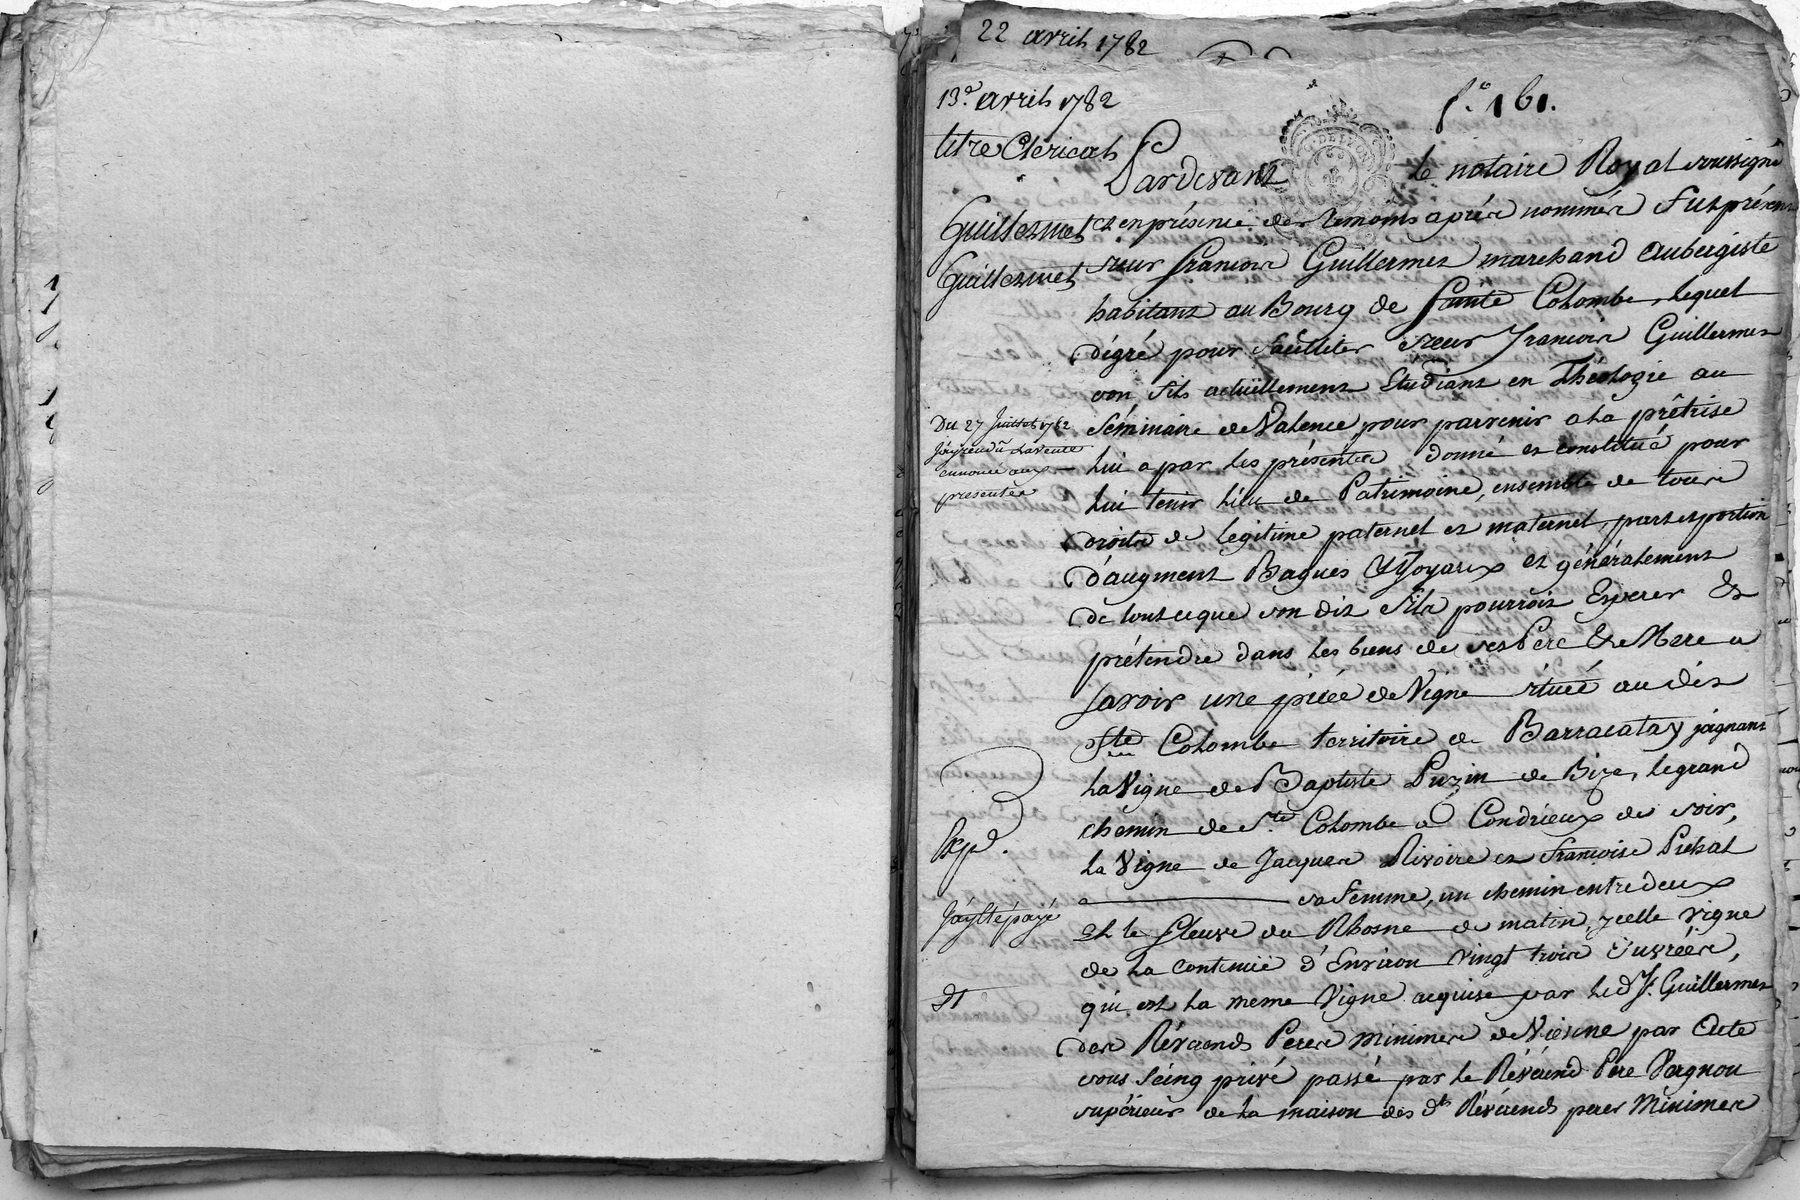 22 avril 1782
13e avril 1782
f.o 161.
titre Clerical
Guillermet
Guillermet
Pardevant le notaire Royal soussigné
et en présence des temoins après nommés fut présent
sieur francois Guillermet marchand aubergiste
habitant au Bourg de Sainte Colombe, lequel
dégré pour faciliter sieur francois Guillermet
son fils actuëllement Etudiant en Théologie au
Séminaire de Valence, pour parvenir a la prêtrise
lui a par les présentes donné et constitué pour
lui tenir lieu de Patrimoine, ensemble de tous
droits de légitime paternel et maternel, part et portion
d'augment Bagues & Joyaux et généralement
de tout ce que son dit fils pourroit Esperer Et
prétendre dans les biens de ses Pere & Mere a
Savoir une piéce de Vigne située au dit
Ste Colombe territoire de Barracatay joignant
la Vigne de Baptiste Puzin de Bize, le grand
chemin de Ste Colombe a Condrieux de soir,
la Vigne de Jacques Rivoire et francoise Pichat
sa femme, un chemin entre deux
Et le fleuve du Rhosne de matin, ycelle vigne
de la contenüe d'Environ vingt trois ouvrées,
qui est la meme Vigne acquise par led. Sr. Guillermet
des Révérends Peres Minimes de Vienne par Acte
sous seing privé passé par le Révérend Pere Vergnon
supérieur de la maison des dts Révérends peres Minimes
Du 27 Juillet 1782
J'ay rendu la vente
enoncée aux
presentes
Expd.
J'ay été payé
DE LYON